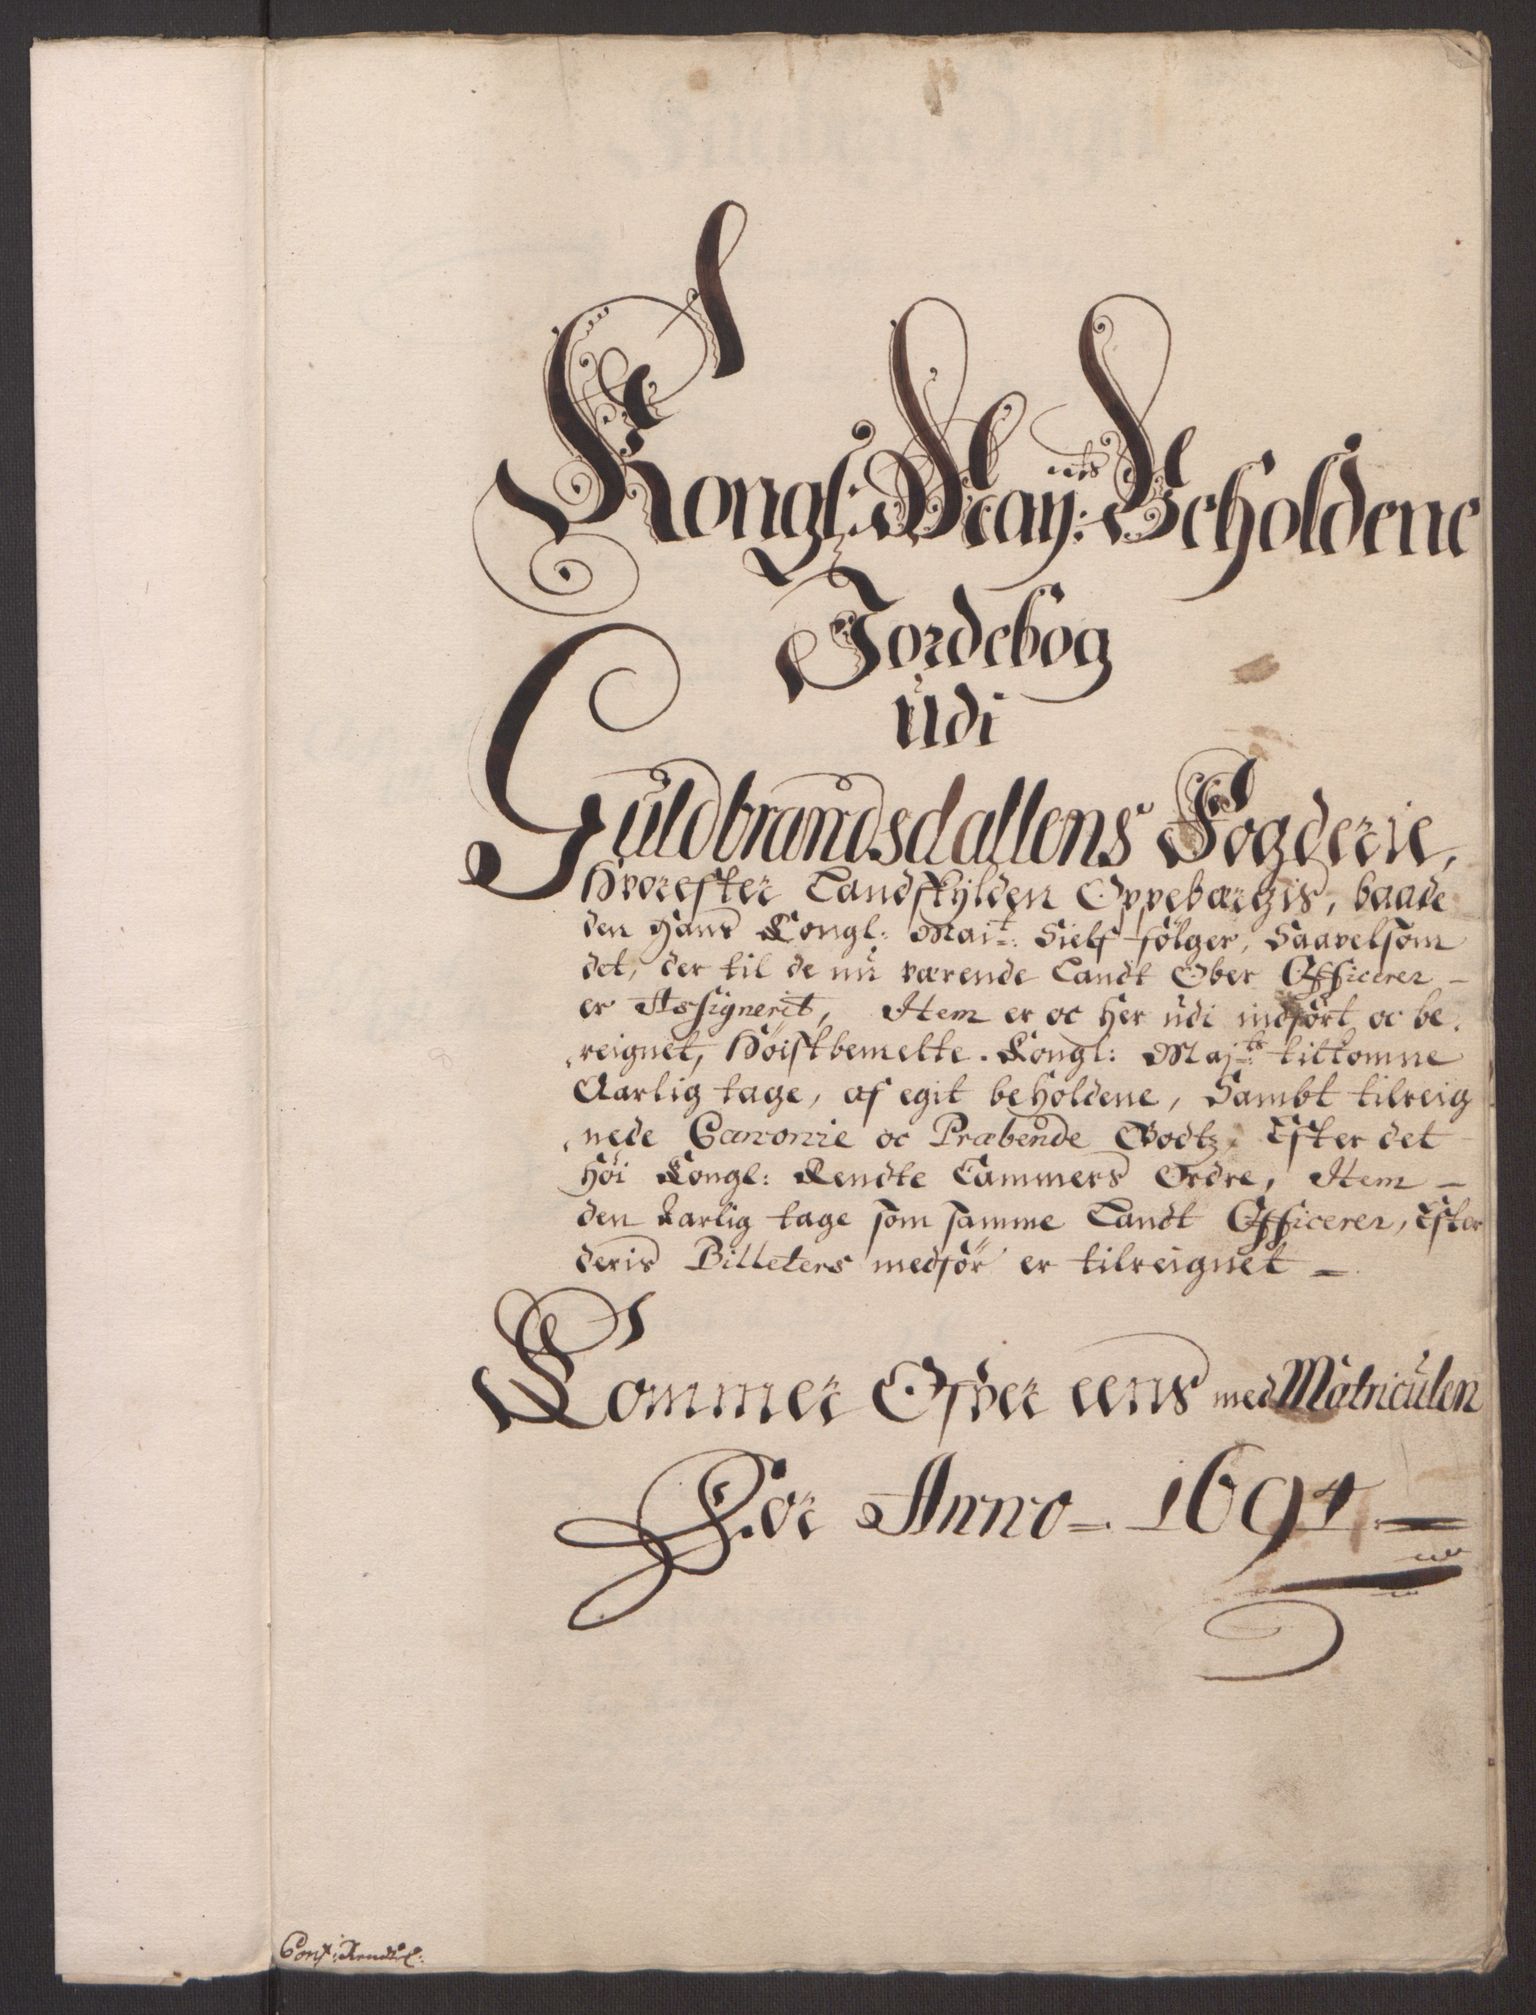 Kongl: May:ets Beholdene
Jordebog
udi
Guldbrandsdallens Fogderie,
Hvorefter Landskÿlden Oppebærgis, baade
den Hans Kongl: Mait: Sielf følger, Saavelsom
det, der til de nu værende Landt Ober Officerer –
er Assignerit, Item er oc Her udi indført oc be,
reignet, Høistbemelte. Kongl: Majts: tilkomne
Aarlig tage, af egit beholdene, Sambt tilreig
,nede Canonie oc Præbende Godtz, Efter det
Høi Kongl: Rendte Cammers Ordre, Item –
den Aarlig tage som samme Landt Officerer, Efter
deris Billeters medfør er tilreignet =
Kommer Ofver eens med Matriculen
For Anno = 1694